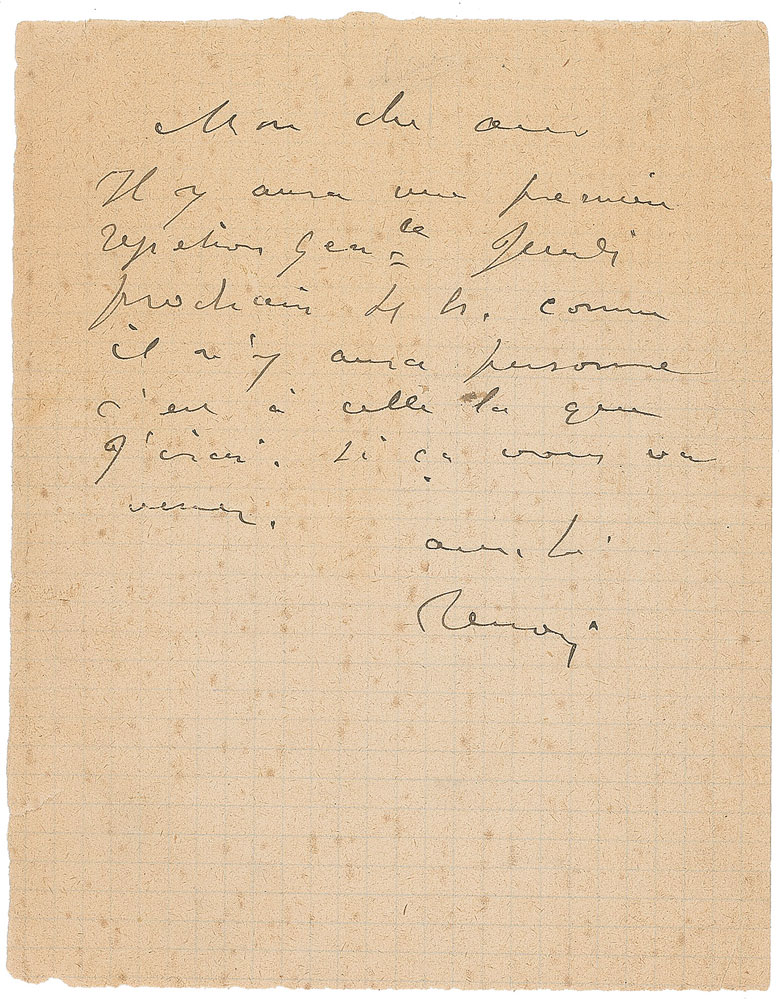 Mon cher ami
Il y aura une première
repetition Gen-le Jeudi
prochain 4 h. comme
il n'y aura personne
c'est à celle la que
J'irai. Si ça vous va
venez.
amitié
Renoir